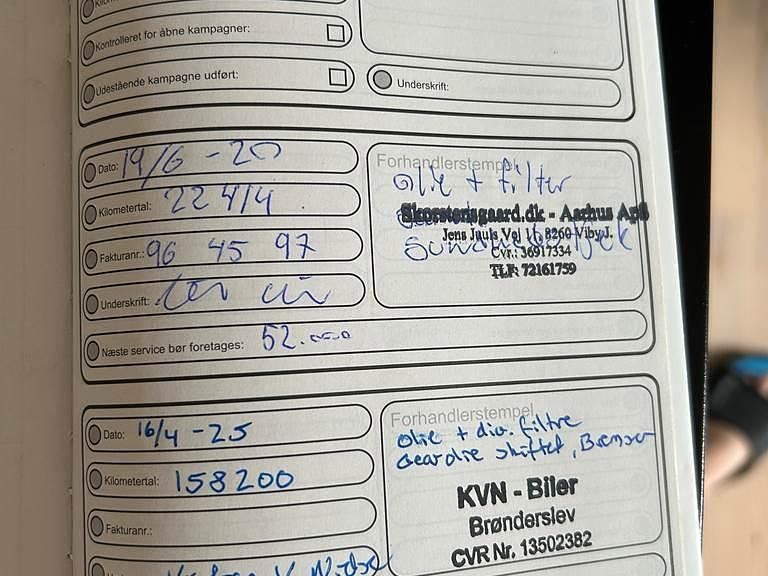 Kontrolleret for åbne kampagner:
Udestående kampagne udført:
Underskrift:
Dato: 19/6 - 20
Kilometertal: 22 414
Fakturanr.: 96 45 97
Underskrift:
Næste service bør foretages: 52.000
Forhandlerstempel
Olie + filter
Skorstensgaard.dk - Aarhus ApS
Jens Juuls Vej 16, 8260 Viby J.
Cvr.: 36917334
TLF: 72161759
Dato: 16/4 - 25
Kilometertal: 158200
Fakturanr.:
Forhandlerstempel
olie + div. filtre
Gearolie skiftet, Bremser
KVN - Biler
Brønderslev
CVR Nr. 13502382